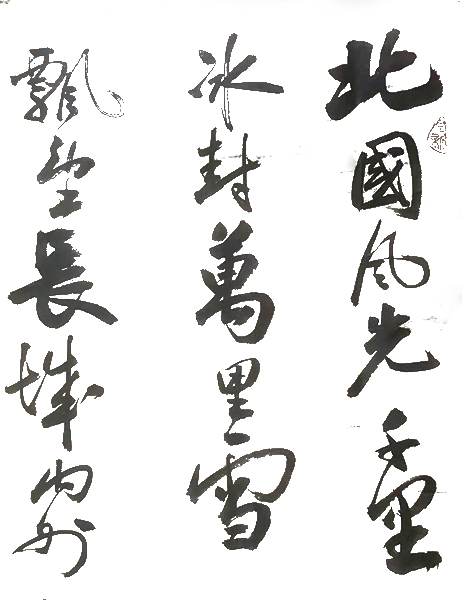 北國风光千里
冰封萬里雪
飄望長城内外